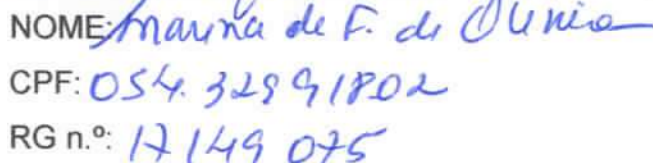 NOME: Marina de F. de Oliveira
CPF: 054.32991802
RG n.º: 17149 075